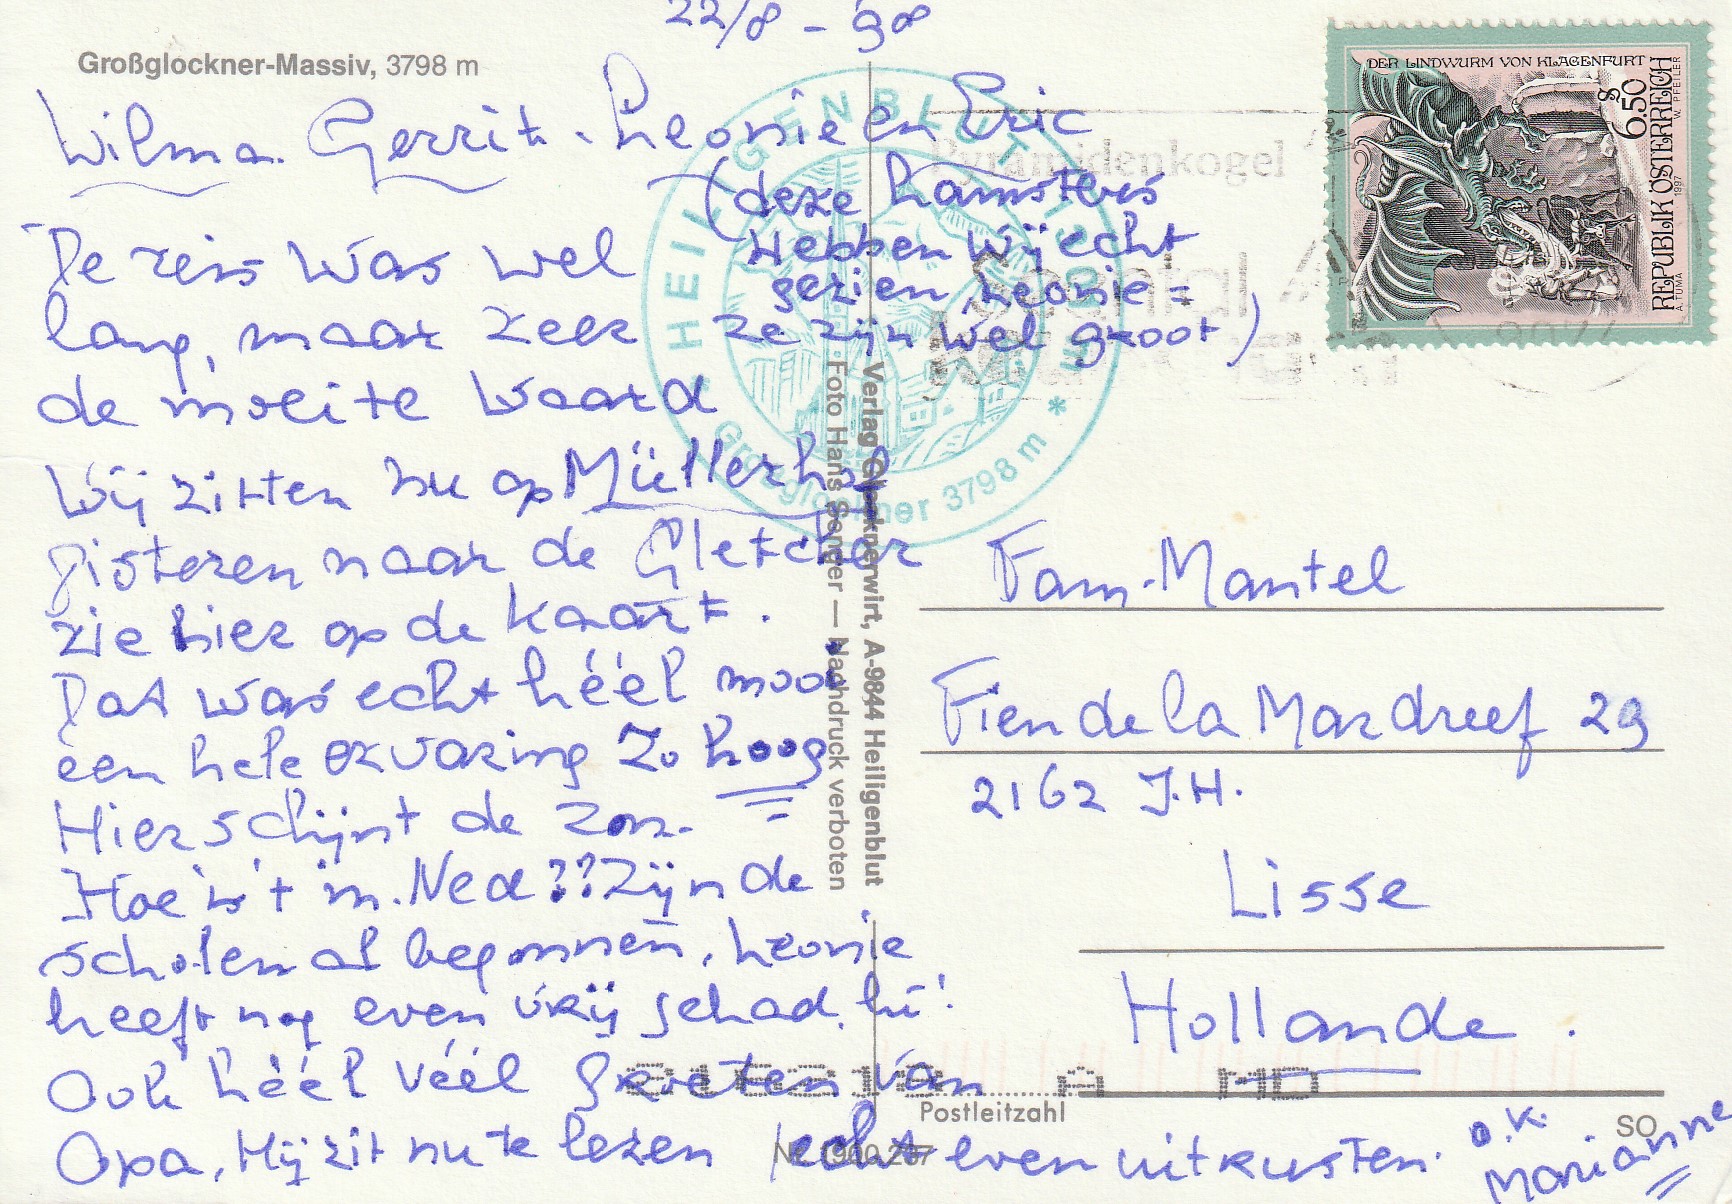 22/8 - 98
Großglockner-Massiv, 3798 m
Wilma. Gerrit. Leonie en Eric
(deze hamsters
Hebben wij echt
gezien Leonie =
ze zijn wel groot)
De reis was wel
lang, maar zeer
de moeite waard
Wij zitten nu op Müllerhof
Gisteren naar de Gletcher
zie hier op de kaart.
Dat was echt héél mooi
een hele ervaring Zo hoog
Hier schijnt de zon.
Hoe is 't in Ned?? Zijn de
scholen al begonnen, Leonie
heeft nog even vrij schad, hi!
Ook héél véél groeten van
Opa, Hij zit nu te lezen echt even uitrusten.
o.k.
Marianne
HEILIGENBLUT
Großglockner 3798 m *
Pyramidenkogel
DER LINDWURM VON KLAGENFURT
S 6.50
REPUBLIK ÖSTERREICH
A. TUMA 1997 W. PFEILER
Verlag Glocknerwirt, A-9844 Heiligenblut
Foto Hans Senger — Nachdruck verboten
Fam. Mantel
Fien de la Mardreef 29
2162 J.H.
Lisse
Hollande.
A MD
Postleitzahl
SO